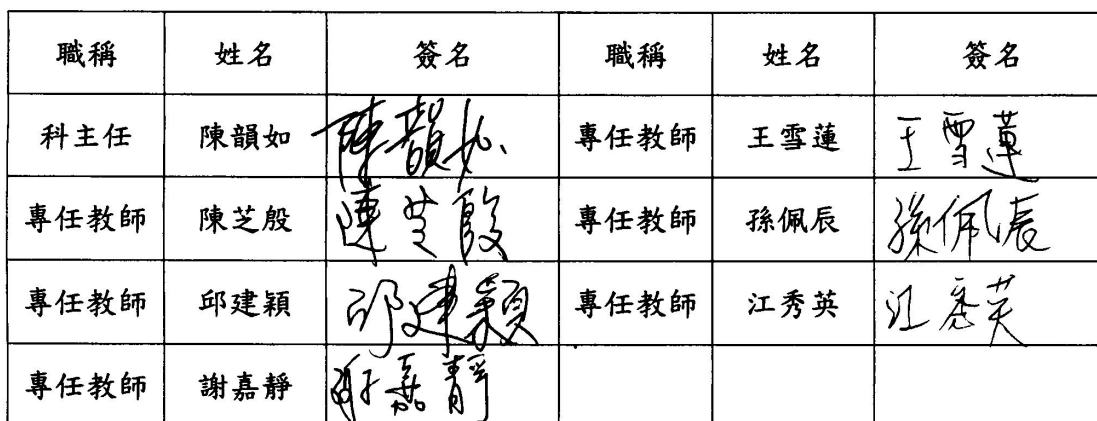 職稱 姓名 簽名 職稱 姓名 簽名
科主任 陳韻如 陳韻如 專任教師 王雪蓮 王雪蓮
專任教師 陳芝殷 連芝殷 專任教師 孫佩辰 孫佩辰
專任教師 邱建穎 邱建穎 專任教師 江秀英 江秀英
專任教師 謝嘉靜 謝嘉靜